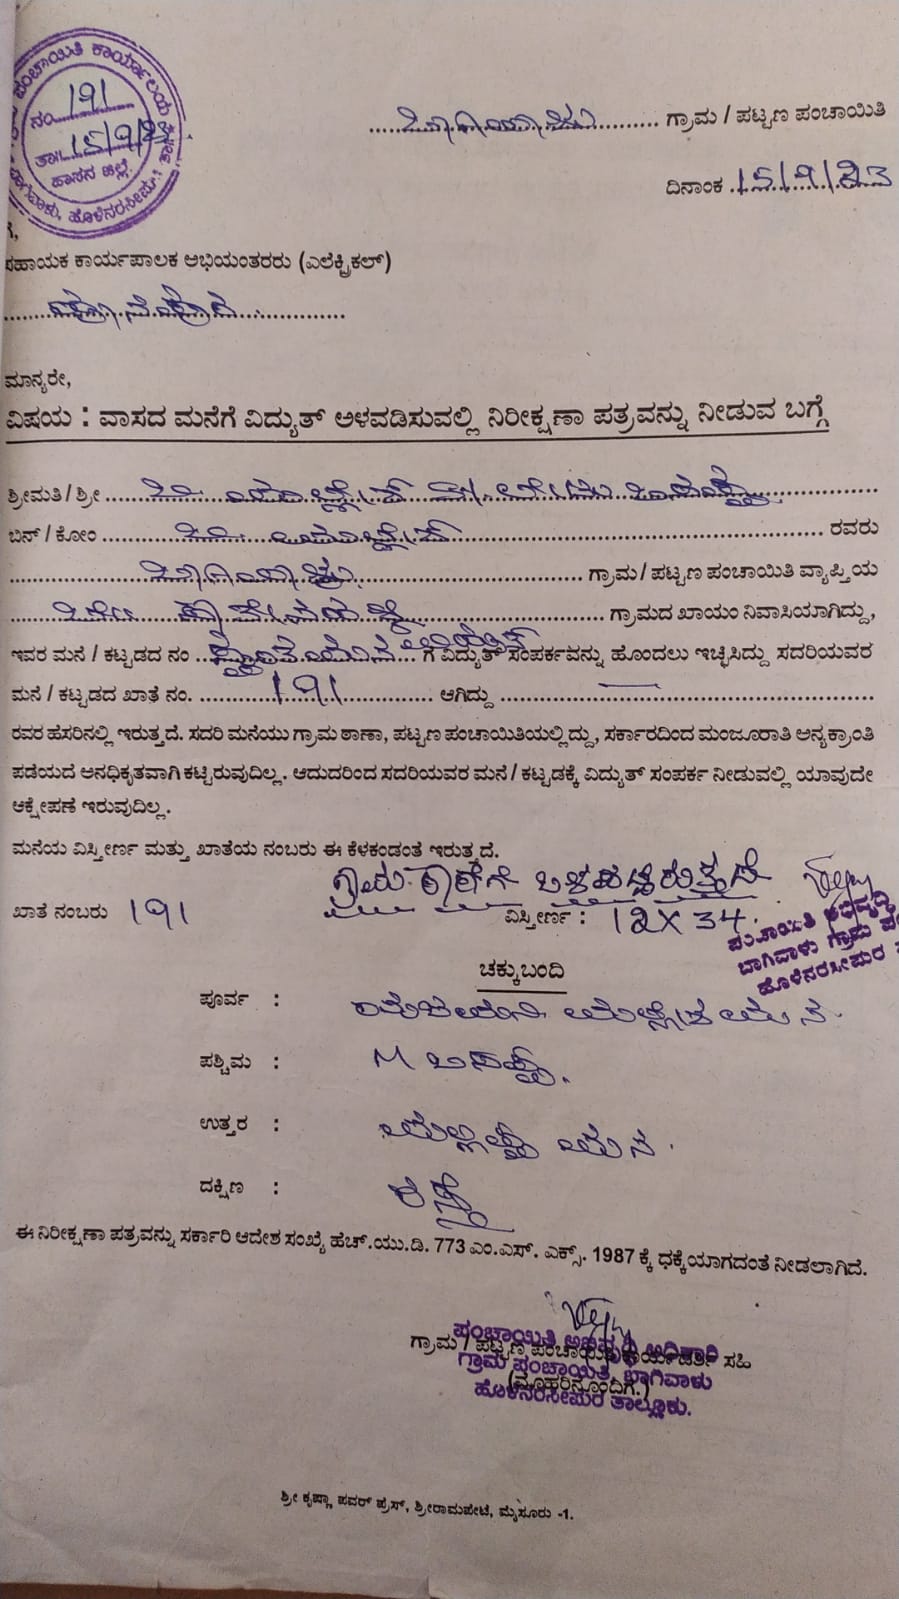 ಪಂಚಾಯಿತಿ ಕಾರ್ಯಾಲಯ
ನಂ. 191
ತಾ|| 15/9/23
ಹಾಸನ ಜಿಲ್ಲೆ.
ಬಾಗಿವಾಳು, ಹೊಳೆನರಸೀಪುರ
ಬಾಗಿವಾಳು ಗ್ರಾಮ / ಪಟ್ಟಣ ಪಂಚಾಯಿತಿ
ದಿನಾಂಕ 15/9/23
ಗೆ,
ಸಹಾಯಕ ಕಾರ್ಯಪಾಲಕ ಅಭಿಯಂತರರು (ಎಲೆಕ್ಟ್ರಿಕಲ್)
ಮಾನ್ಯರೇ,
ವಿಷಯ : ವಾಸದ ಮನೆಗೆ ವಿದ್ಯುತ್ ಅಳವಡಿಸುವಲ್ಲಿ ನಿರೀಕ್ಷಣಾ ಪತ್ರವನ್ನು ನೀಡುವ ಬಗ್ಗೆ
ಶ್ರೀಮತಿ / ಶ್ರೀ
ಬಿನ್ / ಕೋಂ ರವರು
ಬಾಗಿವಾಳು ಗ್ರಾಮ / ಪಟ್ಟಣ ಪಂಚಾಯಿತಿ ವ್ಯಾಪ್ತಿಯ
ಗ್ರಾಮದ ಖಾಯಂ ನಿವಾಸಿಯಾಗಿದ್ದು,
ಇವರ ಮನೆ / ಕಟ್ಟಡದ ನಂ ಗೆ ವಿದ್ಯುತ್ ಸಂಪರ್ಕವನ್ನು ಹೊಂದಲು ಇಚ್ಛಿಸಿದ್ದು ಸದರಿಯವರ
ಮನೆ / ಕಟ್ಟಡದ ಖಾತೆ ನಂ. 191 ಆಗಿದ್ದು
ರವರ ಹೆಸರಿನಲ್ಲಿ ಇರುತ್ತದೆ. ಸದರಿ ಮನೆಯು ಗ್ರಾಮ ಠಾಣಾ, ಪಟ್ಟಣ ಪಂಚಾಯಿತಿಯಲ್ಲಿದ್ದು, ಸರ್ಕಾರದಿಂದ ಮಂಜೂರಾತಿ ಅನ್ಯಕ್ರಾಂತಿ
ಪಡೆಯದೆ ಅನಧಿಕೃತವಾಗಿ ಕಟ್ಟಿರುವುದಿಲ್ಲ. ಆದುದರಿಂದ ಸದರಿಯವರ ಮನೆ / ಕಟ್ಟಡಕ್ಕೆ ವಿದ್ಯುತ್ ಸಂಪರ್ಕ ನೀಡುವಲ್ಲಿ ಯಾವುದೇ
ಆಕ್ಷೇಪಣೆ ಇರುವುದಿಲ್ಲ.
ಮನೆಯ ವಿಸ್ತೀರ್ಣ ಮತ್ತು ಖಾತೆಯ ನಂಬರು ಈ ಕೆಳಕಂಡಂತೆ ಇರುತ್ತದೆ.
ಗ್ರಾಮ ಠಾಣೆಗೆ ಒಳಪಟ್ಟಿರುತ್ತದೆ
ಖಾತೆ ನಂಬರು 191 ವಿಸ್ತೀರ್ಣ : 12X34.
ಪಂಚಾಯಿತಿ ಅಭಿವೃದ್ಧಿ
ಬಾಗಿವಾಳು ಗ್ರಾಮ
ಹೊಳೆನರಸೀಪುರ
ಚಕ್ಕುಬಂದಿ
ಪೂರ್ವ :
ಪಶ್ಚಿಮ : M ಬಸಪ್ಪ.
ಉತ್ತರ : ಮಲ್ಲಪ್ಪ ಮನೆ.
ದಕ್ಷಿಣ : ರಸ್ತೆ
ಈ ನಿರೀಕ್ಷಣಾ ಪತ್ರವನ್ನು ಸರ್ಕಾರಿ ಆದೇಶ ಸಂಖ್ಯೆ ಹೆಚ್.ಯು.ಡಿ. 773 ಎಂ.ಎಸ್. ಎಕ್ಸ್. 1987 ಕ್ಕೆ ಧಕ್ಕೆಯಾಗದಂತೆ ನೀಡಲಾಗಿದೆ.
ಪಂಚಾಯಿತಿ ಅಭಿವೃದ್ಧಿ ಅಧಿಕಾರಿ
ಗ್ರಾಮ / ಪಟ್ಟಣ ಪಂಚಾಯಿತಿ ಕಾರ್ಯದರ್ಶಿ ಸಹಿ
ಗ್ರಾಮ ಪಂಚಾಯಿತಿ, ಬಾಗಿವಾಳು
(ಮೊಹರಿನೊಂದಿಗೆ.)
ಹೊಳೆನರಸೀಪುರ ತಾಲ್ಲೂಕು.
ಶ್ರೀ ಕೃಷ್ಣಾ ಪವರ್ ಪ್ರೆಸ್, ಶ್ರೀರಾಮಪೇಟೆ, ಮೈಸೂರು -1.